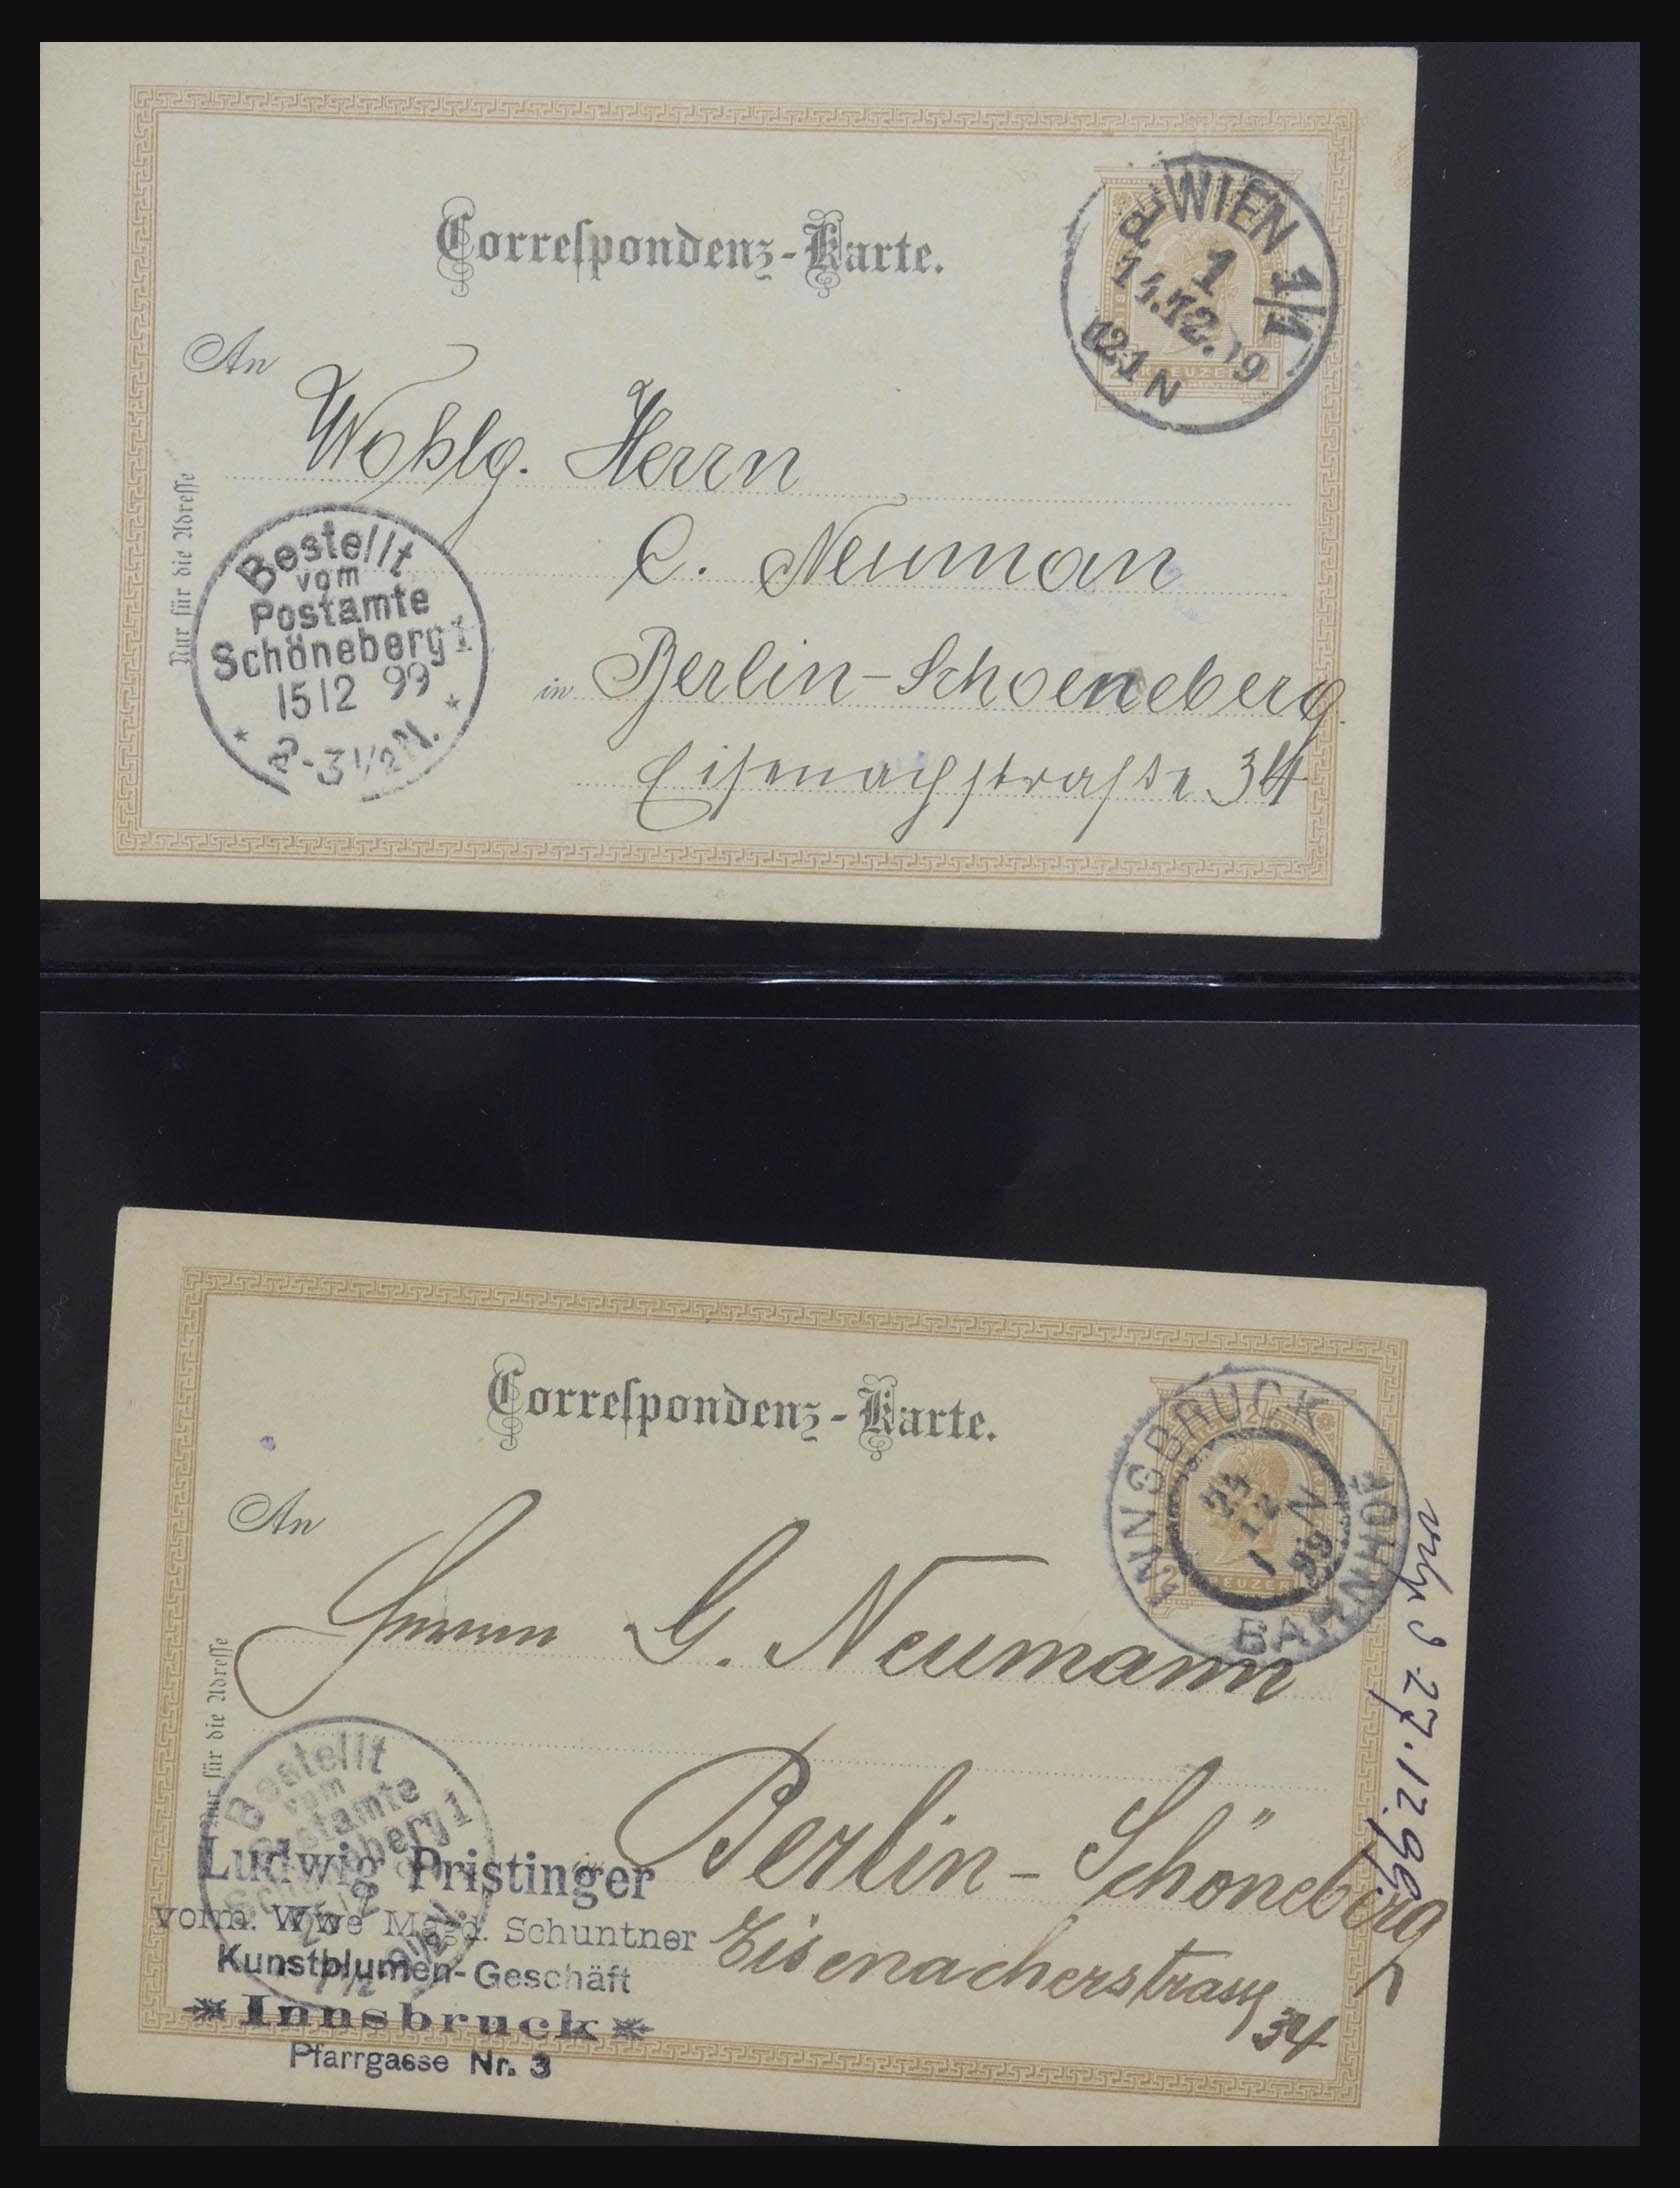 Correspondenz-Karte.
WIEN 1/1
1
14.12.99
12-1 N
2 KREUZER 2
An
Wohlg. Herrn
C. Neuman
in Berlin-Schoeneberg.
Eisenachstraße 34
Nur für die Adresse
Bestellt
vom
Postamte
Schöneberg 1
1512 99
2-3 1/2 N.
Correspondenz-Karte.
INNSBRUCK
BAHNHOF
12
99
2 KREUZER
An
Herrn G. Neumann
Berlin-Schöneberg
Eisenacherstrasse
34
27.12.99.
Nur für die Adresse
Bestellt
vom
Postamte
Schöneberg 1
Ludwig Pristinger
vorm. Wwe Magd. Schuntner
Kunstblumen-Geschäft
Innsbruck
Pfarrgasse Nr. 3